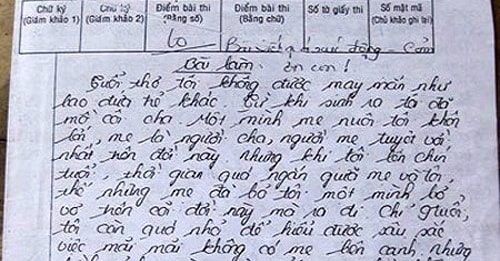 Chữ ký Chữ ký Điểm bài thi Điểm bài thi Số tờ giấy thi Số mật mã
(Giám khảo 1) (Giám khảo 2) (Bằng số) (Bằng chữ) (Chủ khảo ghi lại)
10
Bài viết quá xúc động - Cảm
Bài làm ơn con!
Tuổi thơ tôi không được may mắn như
bao đứa trẻ khác. Từ khi sinh ra tôi đã
mồ côi cha. Một minh mẹ nuôi tôi khôn
lớn, mẹ là người cha, người mẹ tuyệt vời
nhất trên đời này. Nhưng khi tôi lên chín
tuổi, thời gian quá ngắn giữa mẹ và tôi,
thế nhưng mẹ đã bỏ tôi một mình bơ
vơ trên cõi đời này mà ra đi. Chỉ 9 tuổi,
tôi còn quá nhỏ để hiểu được sâu sắc
việc mãi mãi không có mẹ bên cạnh. Nhưng